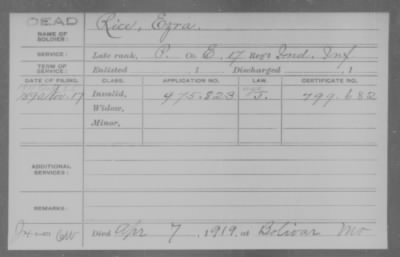 DEAD
NAME OF SOLDIER: Rice, Ezra.
SERVICE: Late rank, P. Co. E, 17 Reg't Ind. Inf
TERM OF SERVICE: Enlisted , 1 Discharged , 1
DATE OF FILING. CLASS. APPLICATION NO. LAW. CERTIFICATE NO.
Nov. 17 Invalid, 975.823 J. 799.682
Widow,
Minor,
ADDITIONAL SERVICES:
REMARKS:
Died Apr 7, 1919, at Bolivar Mo